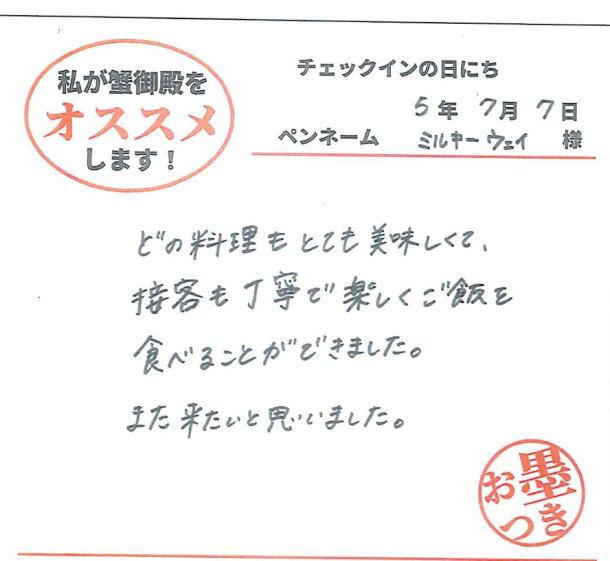 私が蟹御殿を
オススメ
します!
チェックインの日にち
5年 7月 7日
ペンネーム ミルキーウェイ 様
どの料理もとても美味しくて、
接客も丁寧で楽しくご飯を
食べることができました。
また来たいと思いました。
お墨
つき